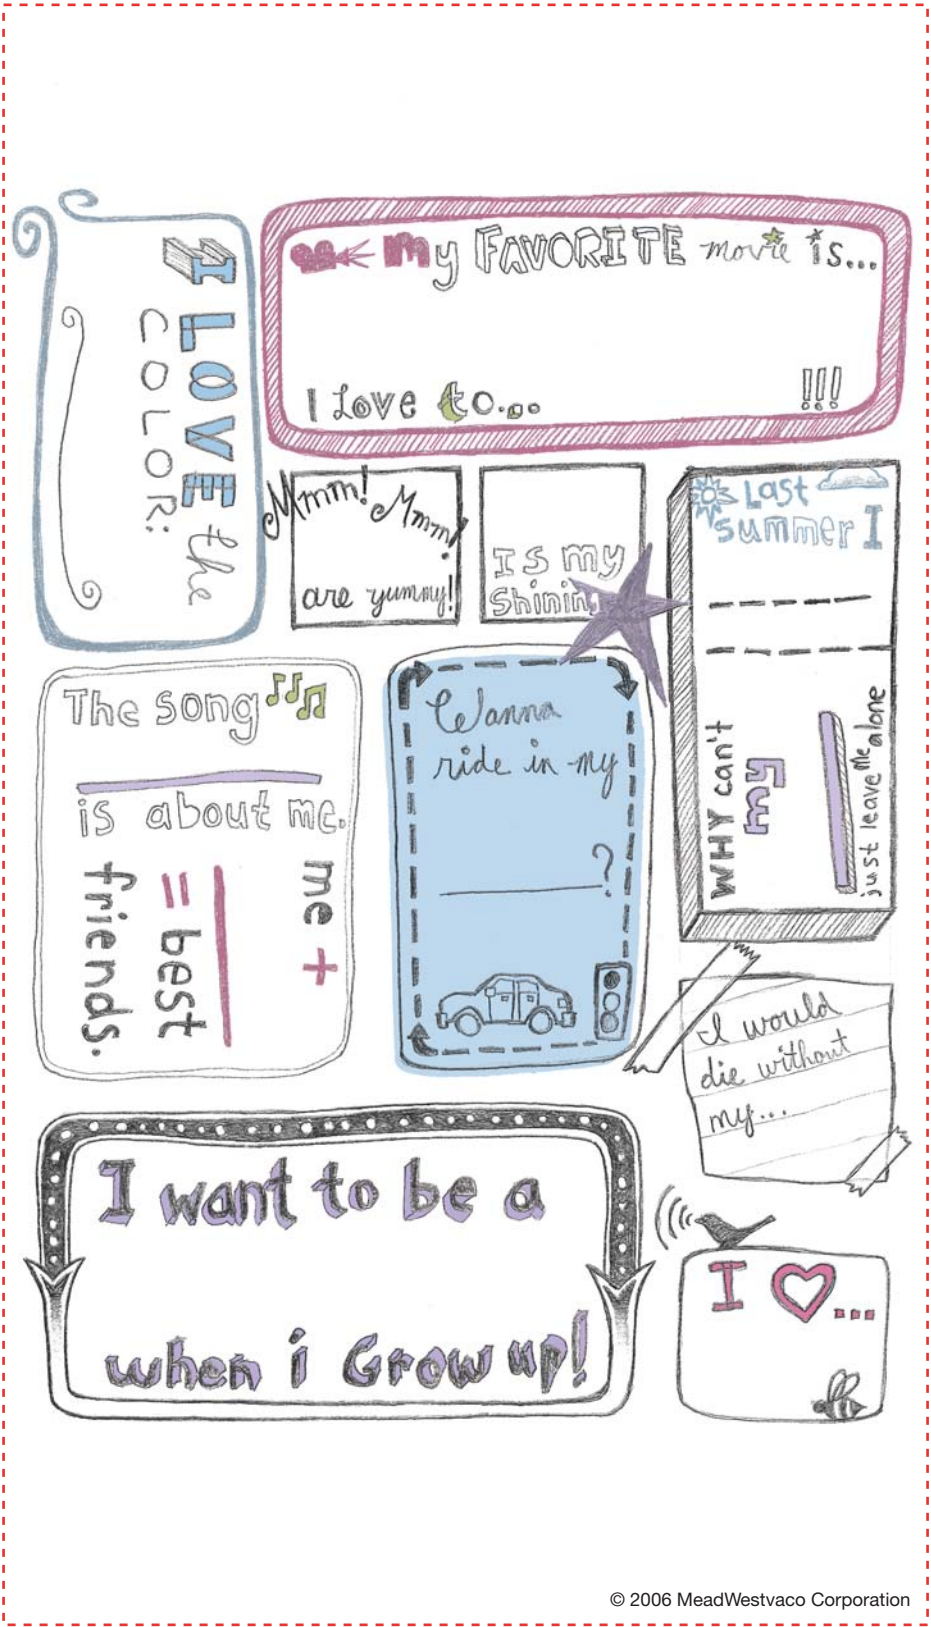 I LOVE the
COLOR:
my FAVORITE movie is...
I Love to...
!!!
Mmm! Mmm!
are yummy!
Is my
Shining
Last
summer I
WHY can't
my
just leave me alone
The song
is about me.
me +
= best
friends.
Wanna
ride in my
?
I would
die without
my...
I want to be a
when i Grow up!
I ♡...
© 2006 MeadWestvaco Corporation